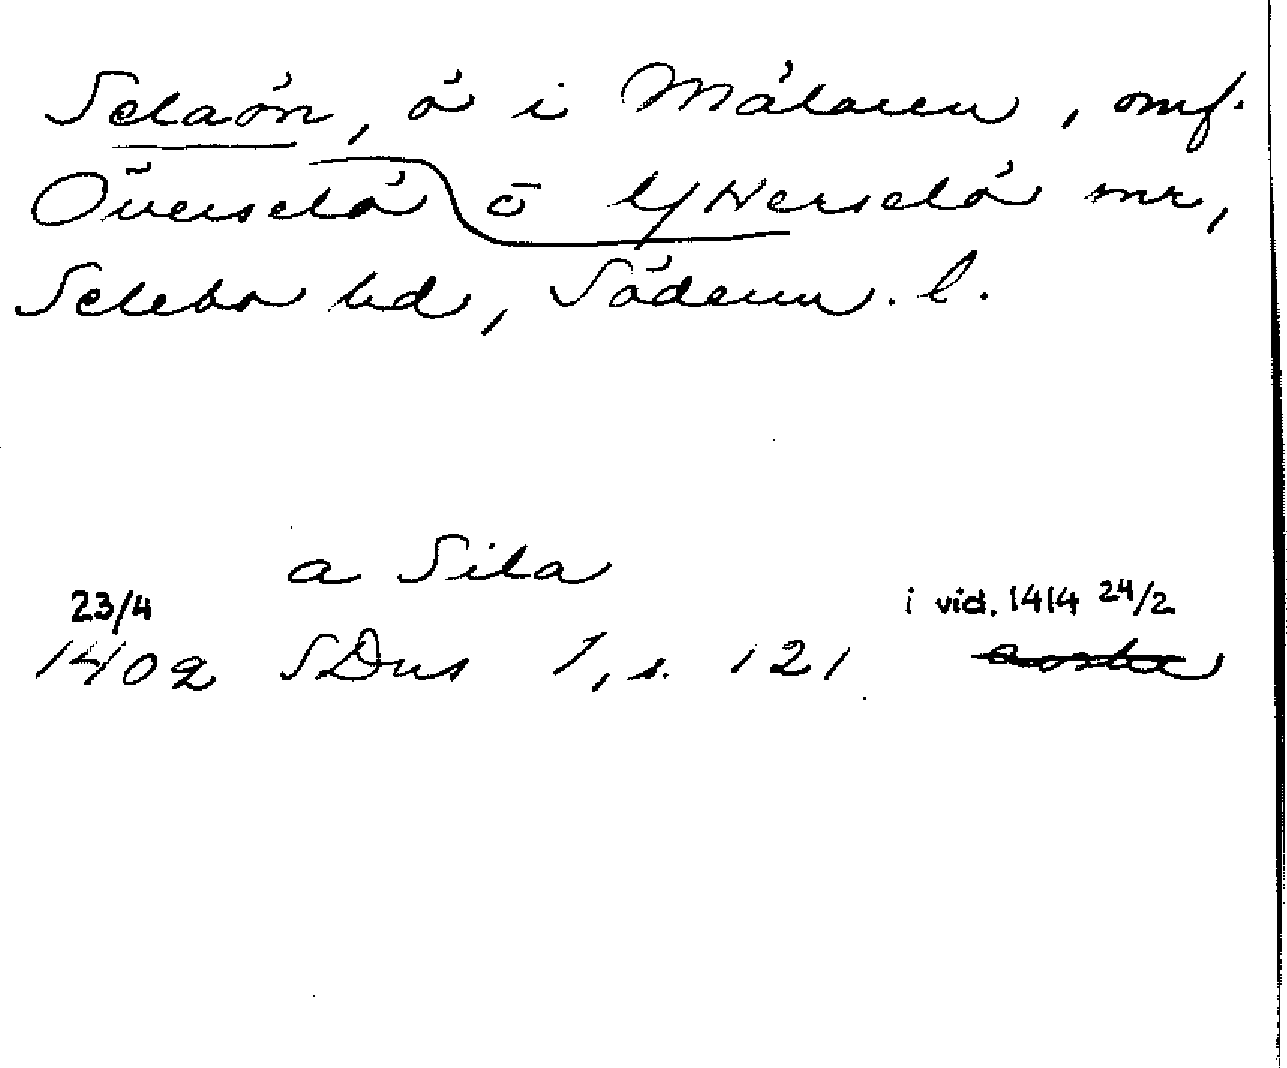 Selaön, ö i Mälaren, omf.
Överselö o Ytterselö snr,
Selebo hd, Söderm. l.
a Sila
23/4
i vid. 1414 24/2
1402 SDns 1, s. 121